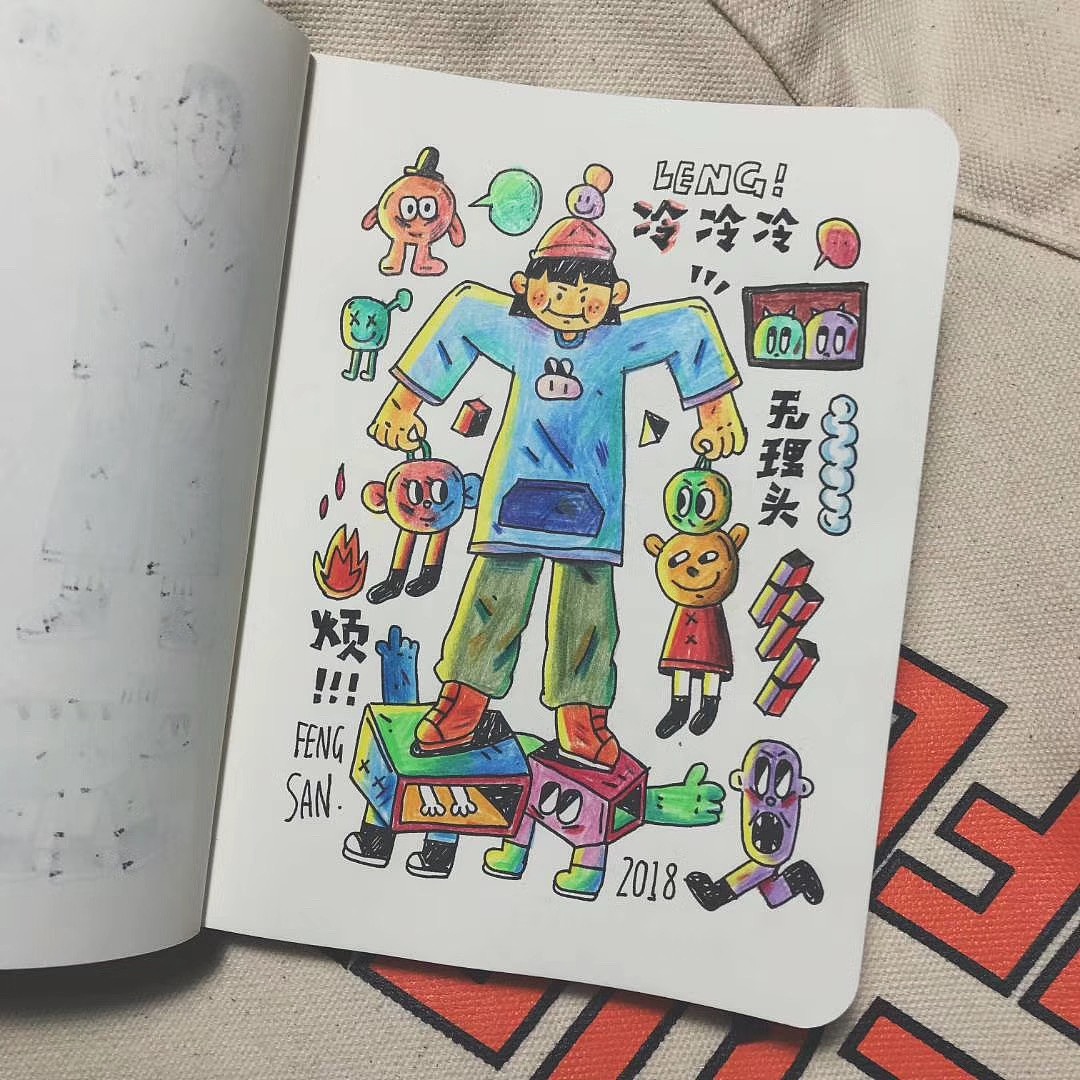 LENG!
冷冷冷
无
理
头
烦
!!!
FENG
SAN.
2018